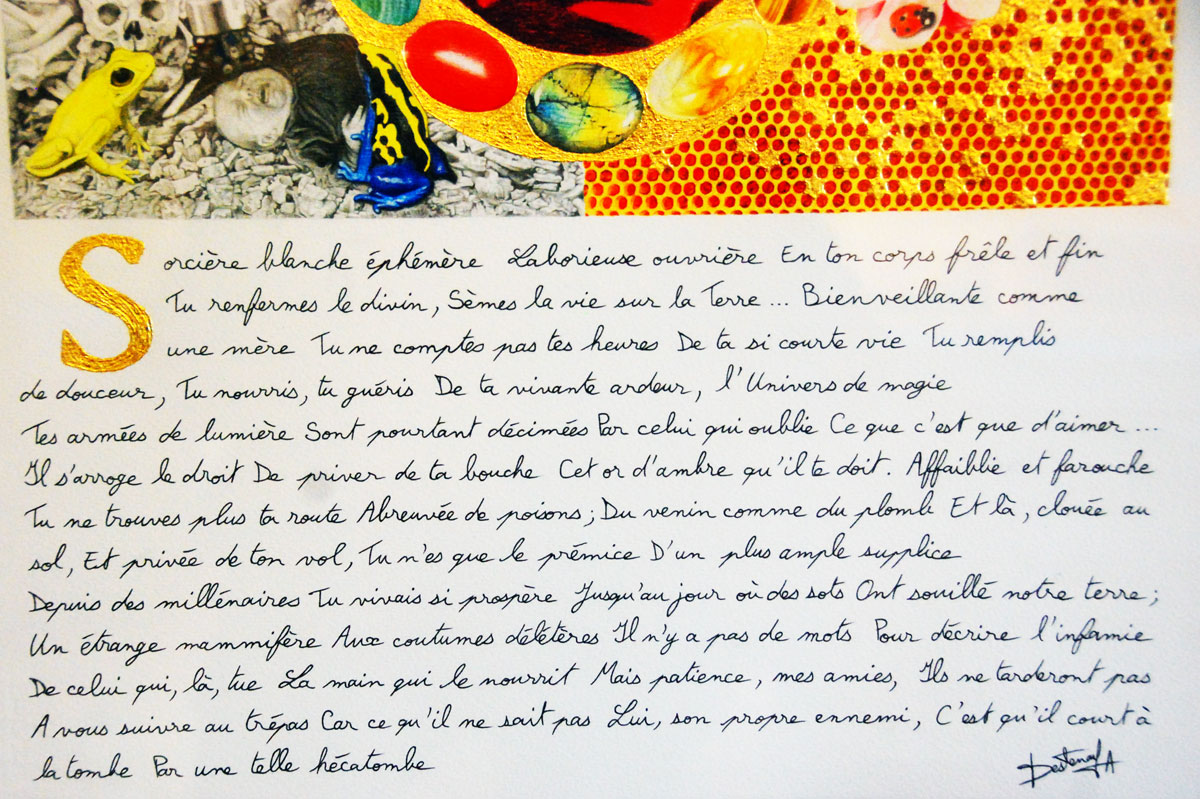 Sorcière blanche éphémère Laborieuse ouvrière En ton corps frêle et fin
Tu renfermes le divin, Sèmes la vie sur la Terre... Bienveillante comme
une mère Tu ne comptes pas tes heures De ta si courte vie Tu remplis
de douceur, Tu nourris, tu guéris De ta vivante ardeur, l'Univers de magie
Tes armées de lumière Sont pourtant décimées Par celui qui oublie Ce que c'est que d'aimer...
Il s'arroge le droit De priver de ta bouche Cet or d'ambre qu'il te doit. Affaiblie et farouche
Tu ne trouves plus ta route Abreuvée de poisons; Du venin comme du plomb Et là, clouée au
sol, Et privée de ton vol, Tu n'es que le prémice D'un plus ample supplice
Depuis des millénaires Tu vivais si prospère Jusqu'au jour où des sots Ont souillé notre terre;
Un étrange mammifère Aux coutumes délétères Il n'y a pas de mots Pour décrire l'infamie
De celui qui, là, tue La main qui le nourrit Mais patience, mes amies, Ils ne tarderont pas
A vous suivre au trépas Car ce qu'il ne sait pas Lui, son propre ennemi, C'est qu'il court à
la tombe Par une telle hécatombe